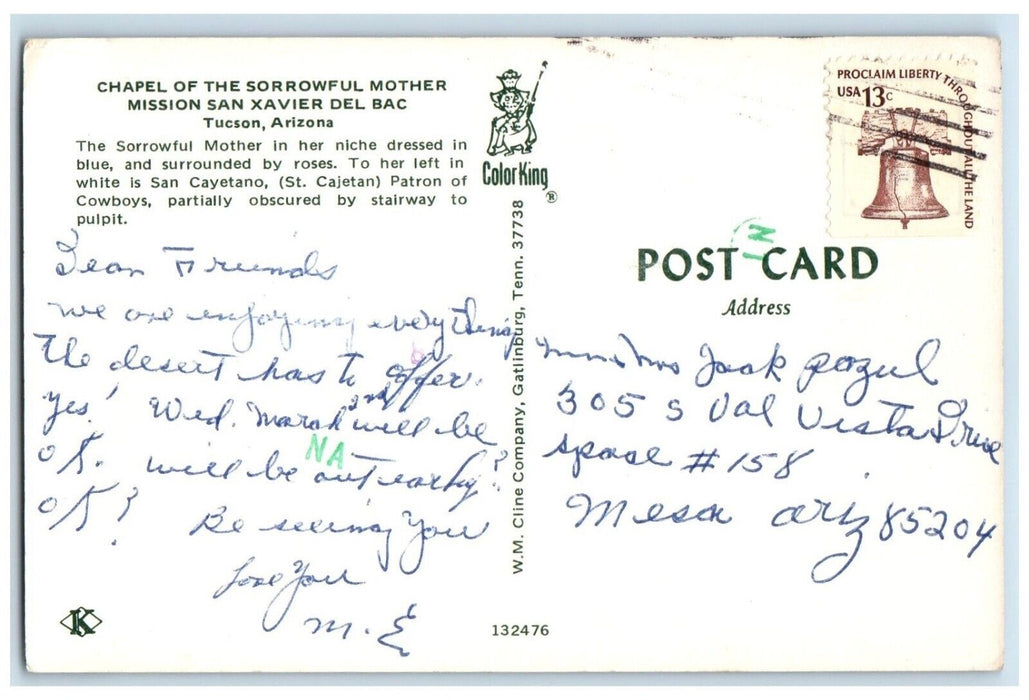 CHAPEL OF THE SORROWFUL MOTHER
MISSION SAN XAVIER DEL BAC
Tucson, Arizona
The Sorrowful Mother in her niche dressed in
blue, and surrounded by roses. To her left in
white is San Cayetano, (St. Cajetan) Patron of
Cowboys, partially obscured by stairway to
pulpit.
Dear Friends
We are enjoying everything
the desert has to offer.
Yes! Wed. March 2nd will be
O.K. will be out early?
O.K?
NA
Be seeing You
Love You
M. E
K
132476
Color King ®
W.M. Cline Company, Gatlinburg, Tenn. 37738
PROCLAIM LIBERTY THROUGHOUT ALL THE LAND
USA 13c
N
POST CARD
Address
Jack
305 S Val Vista Drive
space # 158
Mesa Ariz 85204